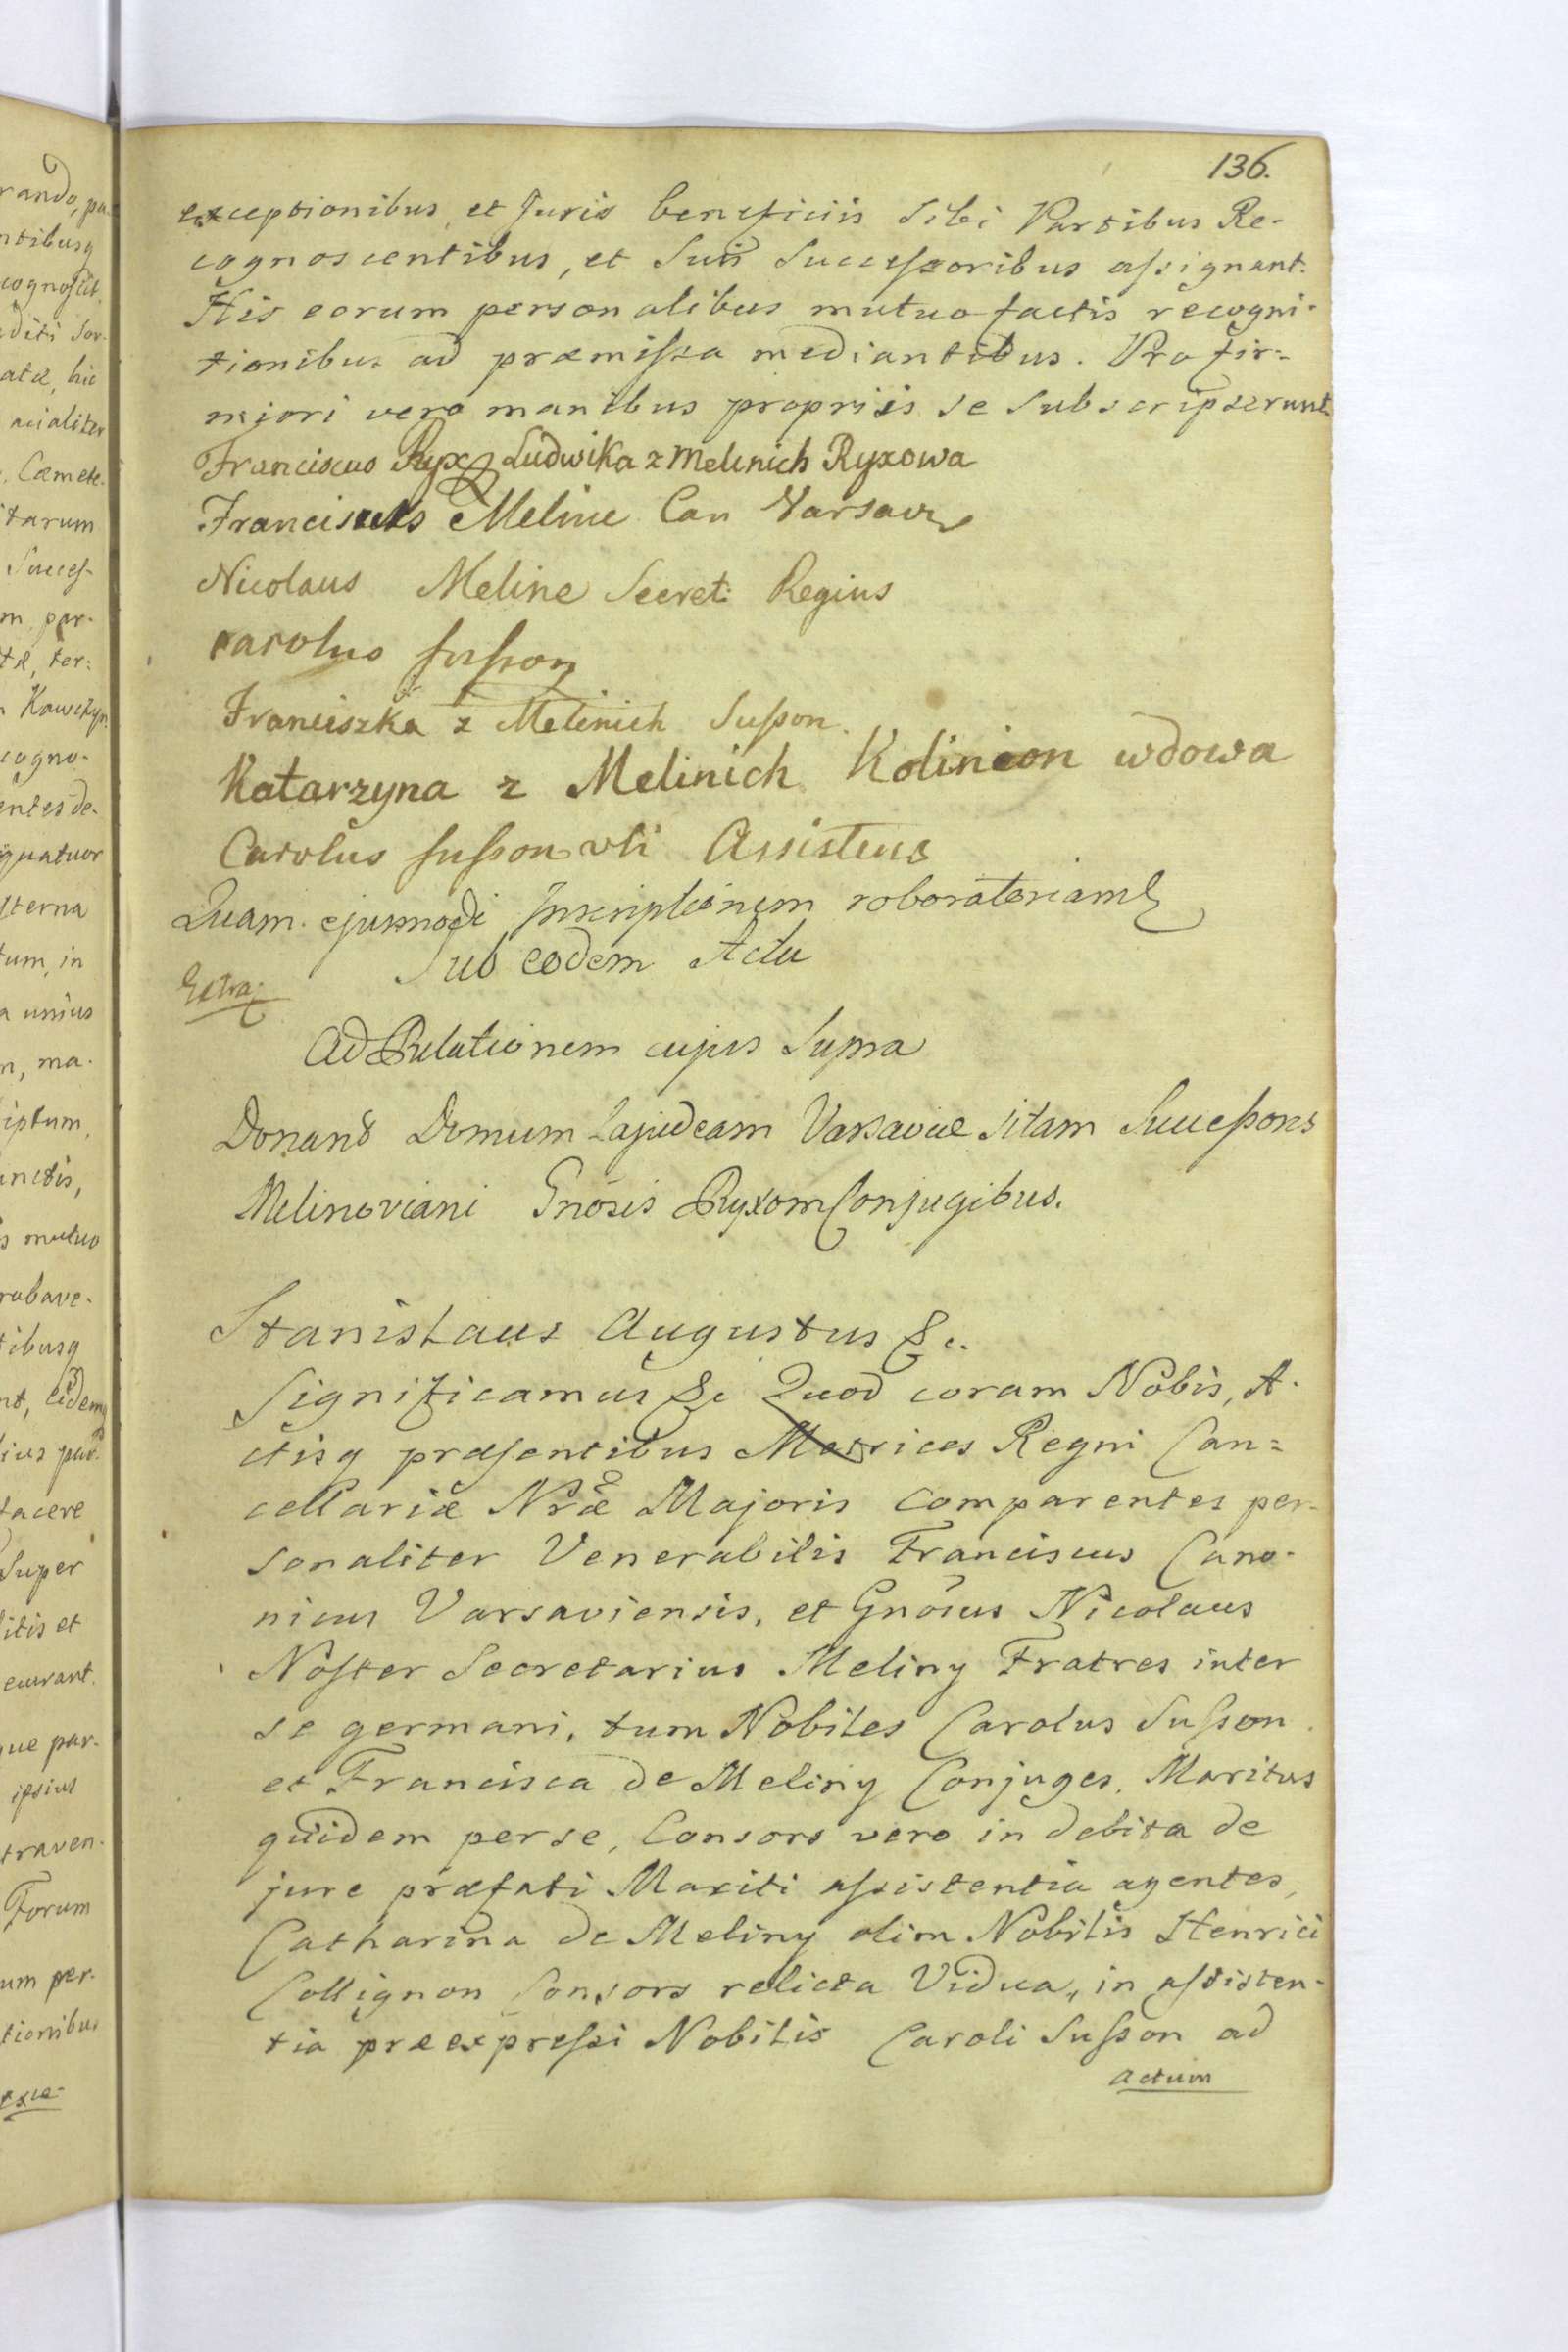 136.
exceptionibus, et Juris beneficiis sibi Partibus Re-
cognoscentibus, et Suis Successoribus assignant.
His eorum personalibus mutuo factis recogni-
tionibus ad præmissa mediantibus. Pro fir-
miori vero manibus propriis se subscripserunt.
Franciscus Ryx Ludwika z Melinich Ryxowa
Franciscus Meline Can Varsav
Nicolaus Meline Secret: Regius
Carolus Susson
Franciszka z Melinich Susson.
Katarzyna z Melinich Kolinion wdowa
Carolus Susson uti Assistens
Quam ejusmodi Inscriptionem roboratoriam
Sub eodem Actu
Extra:
Ad Relationem cujus Supra
Donant Domum Lapideam Varsaviæ sitam Successores
Melinoviani Gnosis Ryxom Conjugibus.
Stanislaus Augustus &c.
Significamus &c Quod coram Nobis, A-
ctisq præsentibus Metrices Regni Can=
cellariæ Nræ Majoris Comparentes per-
sonaliter Venerabilis Franciscus Cano-
nicus Varsaviensis, et Gnosus Nicolaus
Noster Secretarius Meliny Fratres inter
se germani, tum Nobiles Carolus Susson
et Francisca de Meliny Conjuges, Maritus
quidem per se, Consors vero in debita de
jure præfati Mariti assistentia agentes,
Catharina de Meliny olim Nobilis Henrici
Collignon Consors relicta Vidua, in assisten-
tia præexpressi Nobilis Caroli Susson ad
actum